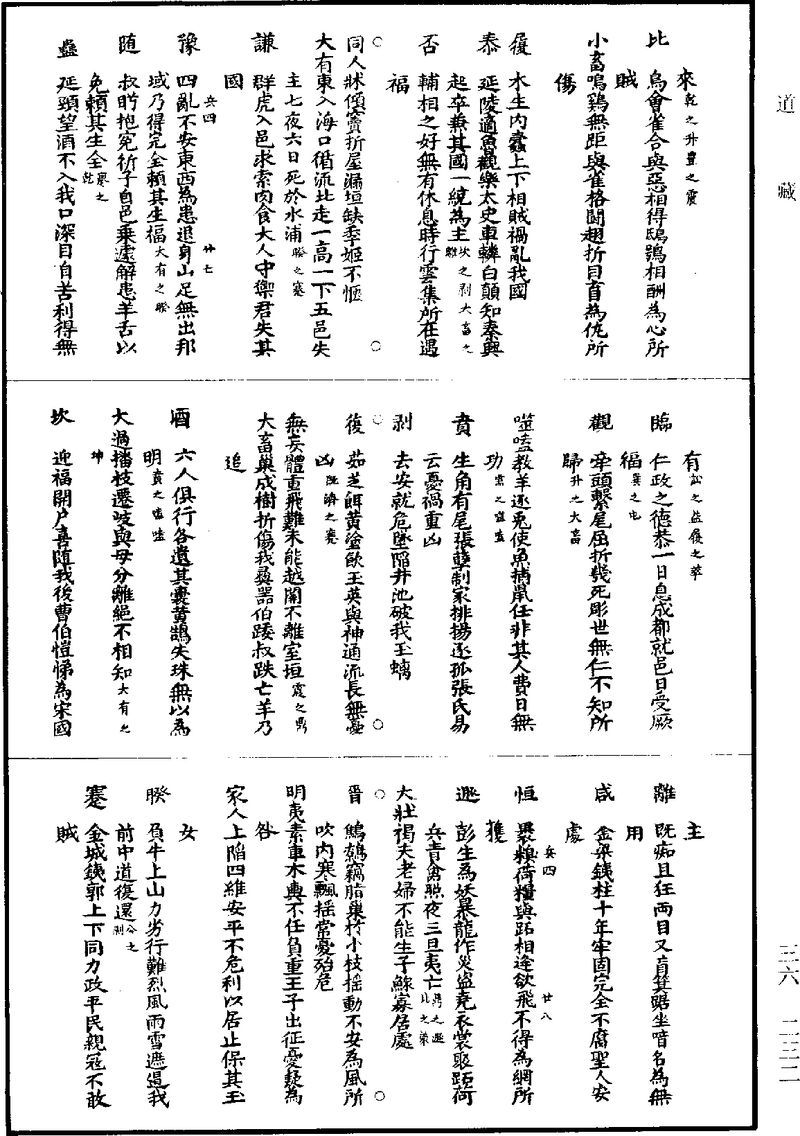 道藏
三六
二三二
來乾之升豐之震
比　烏會雀合與惡相得鴟鴞相酬為心所
賊
小畜嗚鷄無距與雀格鬬翅折目盲為仇所
傷
履　木生內蠹上下相賊禍亂我國
泰　延陵適魯觀樂太史車轔白顛知秦興
起卒兼其國一統為主坎之剥大畜之離
否　輔相之好無有休息時行雲集所在遇
福
同人狀傾竇折屋漏垣缺季姬不愜
大有東入海口循流北走一高一下五邑失
主七夜六日死於水浦睽之蹇
謙　群虎入邑求索肉食大人守禦君失其
國
兵四　廿七
豫　四亂不安東西為患退身山足無出邦
域乃得完全賴其生福大有之睽
隨　叔肸抱冤祈子自邑乘遽解患羊舌以
免賴其生全蹇之乾
蠱　延頸望酒不入我口深目自苦利得無
有訟之益履之萃
臨　仁政之德恭一日息成都就邑日受厥
福巽之屯
觀　牽頭繫尾屈折幾死彫世無仁不知所
歸升之大畜
噬嗑教羊逐兎使魚捕鼠任非其人費日無
功需之噬嗑
賁　生角有尾張孽制家排揚逐孤張氏易
云憂禍重凶
剥　去安就危墜陷井池破我玉螭
復　茹芝餌黃塗飲玉英與神通流長無憂
凶既濟之蹇
無妄體重飛難未能越關不離室垣震之鼎
大畜巢成樹折傷我彞器伯踒叔跌亡羊乃
追
頤　六人俱行各遺其囊黃鵠失珠無以為
明賁之噬嗑
大過播枝遷岐與母分離絕不相知大有之
坤
坎　迎福開戶喜隨我後曹伯愷悌為宋國
主
離　既痴且狂兩目又盲箕踞坐喑名為無
用
咸　金梁鐵柱十年牢固完全不腐聖人安
處
兵四　廿八
恒　裹糗荷糧與跖相逢欲飛不得為網所
獲
遯　彭生為妖暴龍作災盜堯衣裳聚跖荷
兵青禽照夜三旦夷亡
大壯褐夫老婦不能生子鰥寡居處
晉　鷦鷯竊脂巢於小枝搖動不安為風所
吹內寒飄搖常憂殆危
明夷素車木輿不任負重王子出征憂疑為
咎
家人上陷四維安平不危利以居止保其玉
女
睽　負牛上山力劣行難烈風雨雪遮遏我
前中道復還
蹇　金城鐵郭上下同力政平民親寇不敢
賊